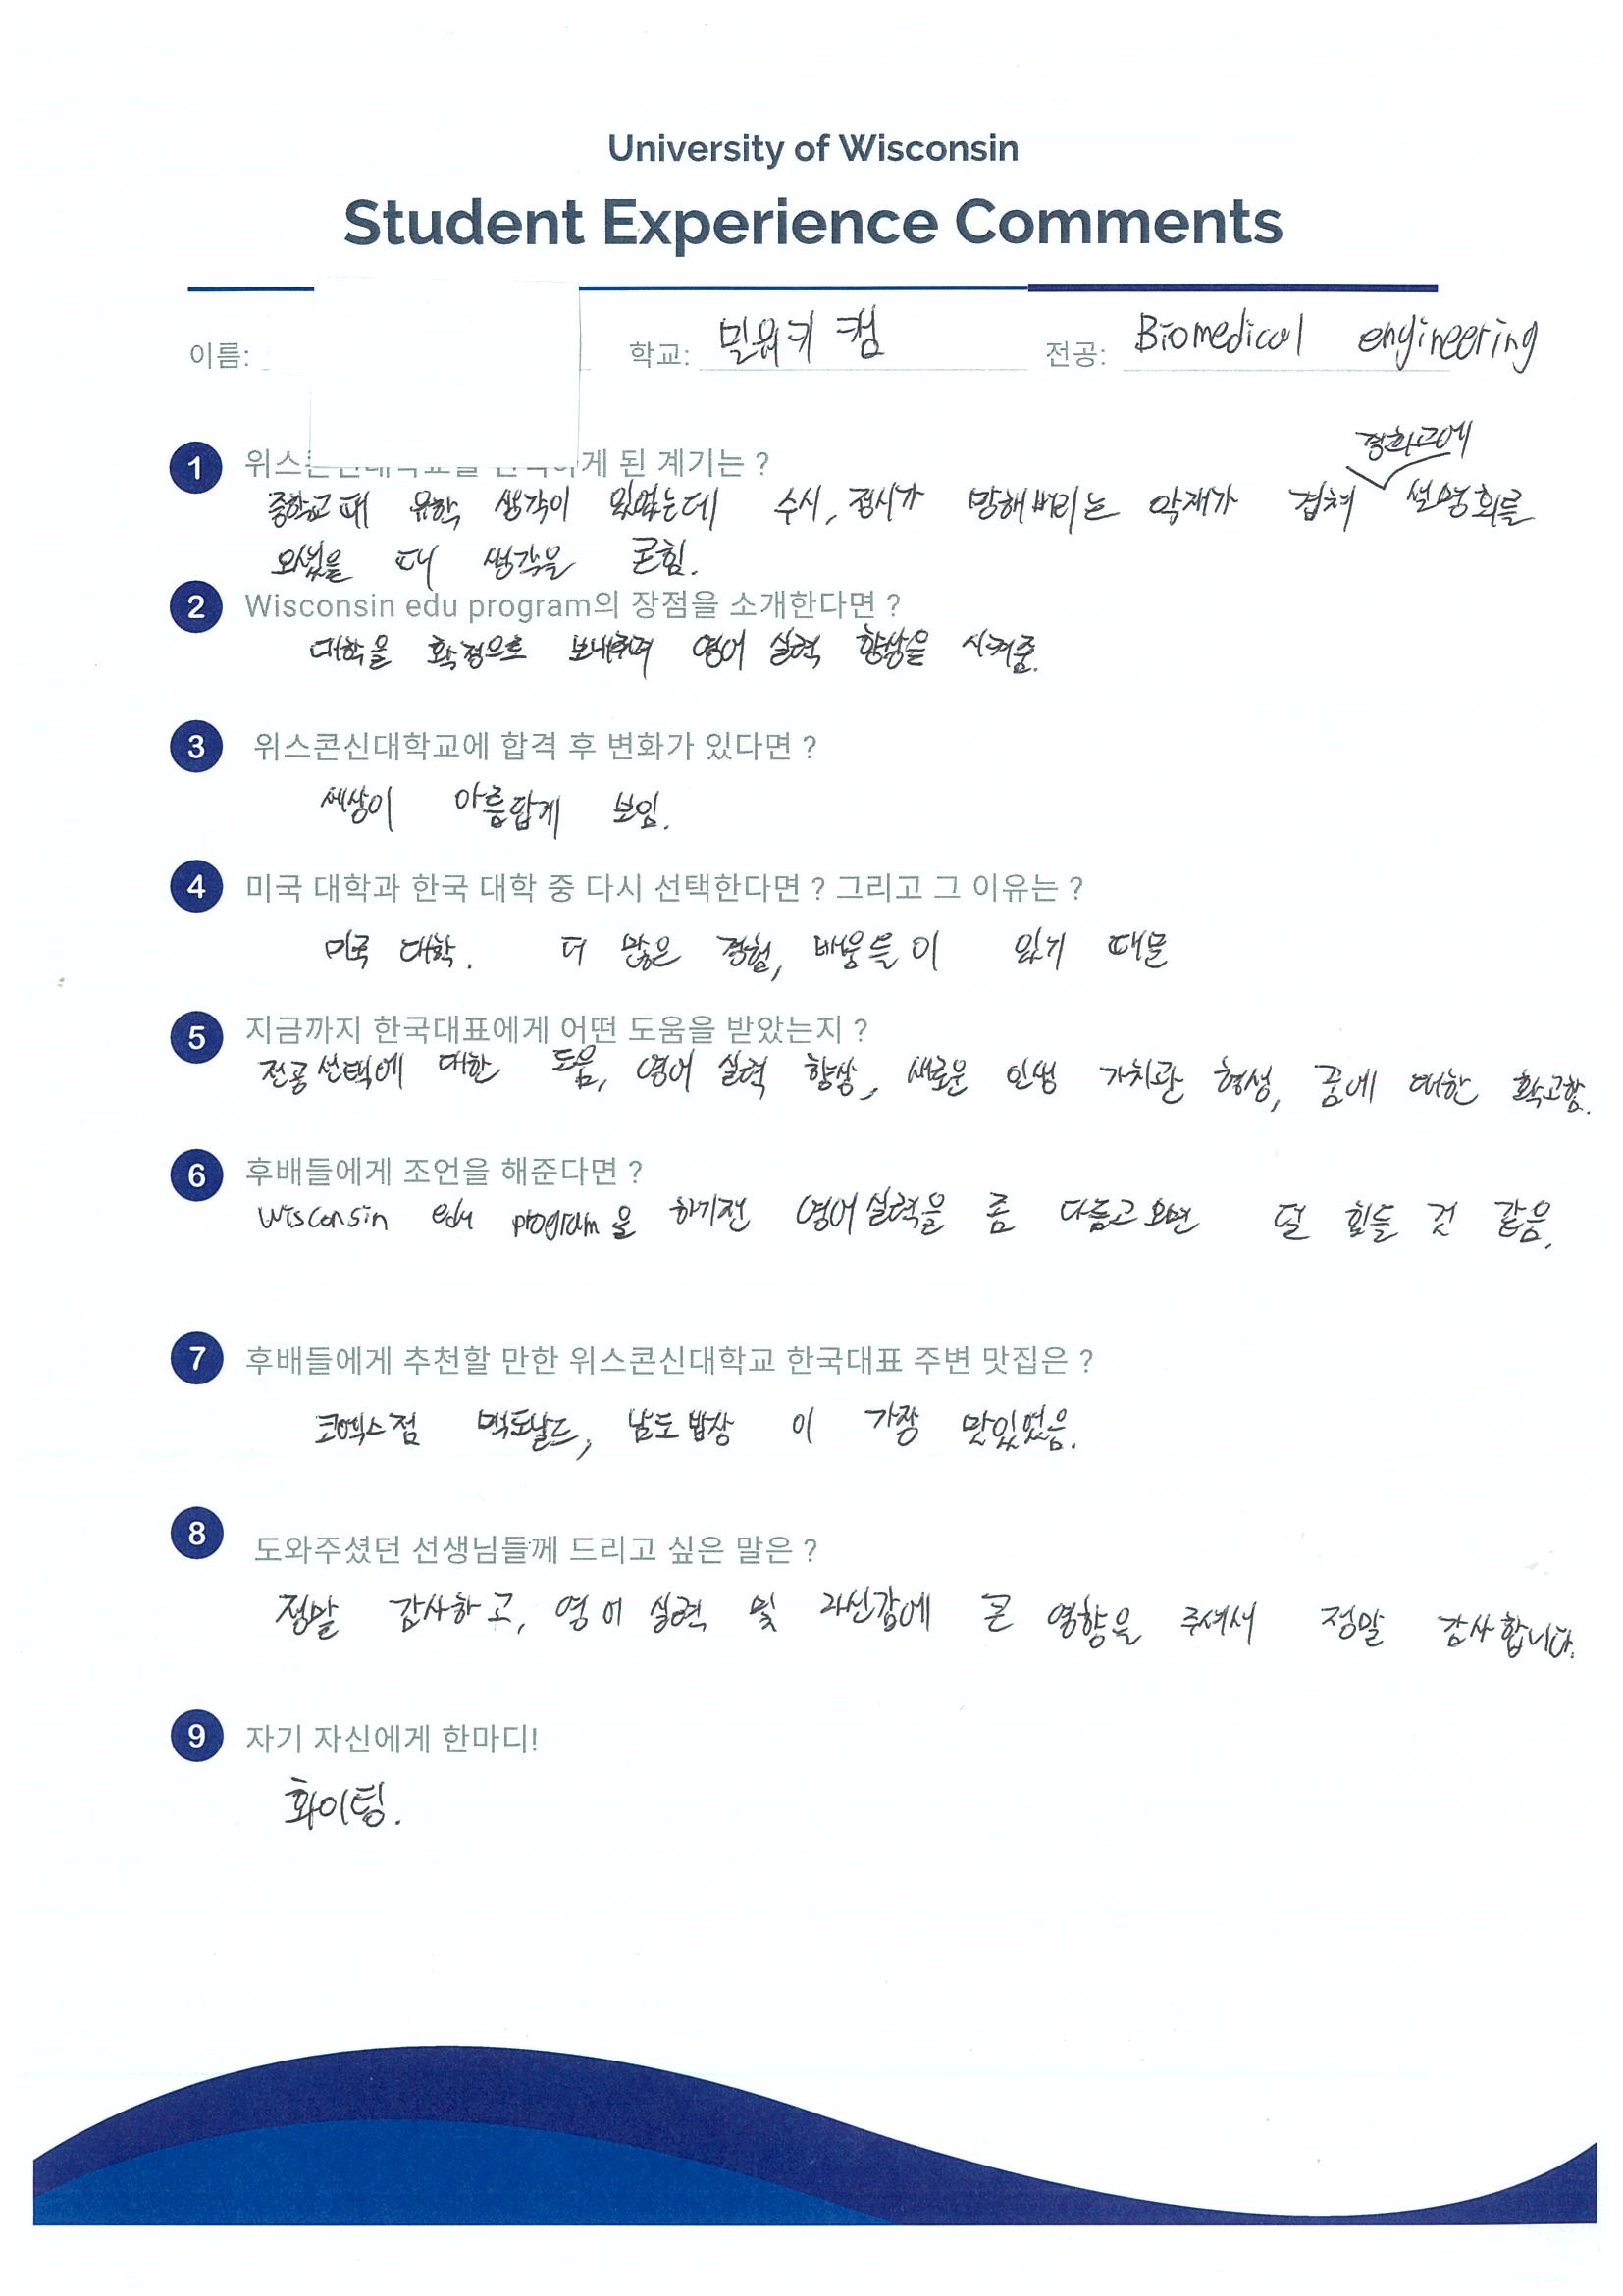 University of Wisconsin
Student Experience Comments
이름: 학교: 밀워키 캠 전공: Biomedical engineering
1 위스콘신대학교를 선택하게 된 계기는 ?
경화고에
중학교 때 유학 생각이 있었는데 수시, 정시가 망해버리는 악재가 겹쳐 설명회를
오셨을 때 생각을 굳힘.
2 Wisconsin edu program의 장점을 소개한다면 ?
대학을 확정으로 보내주며 영어 실력 향상을 시켜줌.
3 위스콘신대학교에 합격 후 변화가 있다면 ?
세상이 아름답게 보임.
4 미국 대학과 한국 대학 중 다시 선택한다면 ? 그리고 그 이유는 ?
미국 대학. 더 많은 경험, 배움들이 있기 때문
5 지금까지 한국대표에게 어떤 도움을 받았는지 ?
전공 선택에 대한 도움, 영어 실력 향상, 새로운 인생 가치관 형성, 꿈에 대한 확고함.
6 후배들에게 조언을 해준다면 ?
Wisconsin edu program을 하기전 영어실력을 좀 다듬고 오면 덜 힘들 것 같음.
7 후배들에게 추천할 만한 위스콘신대학교 한국대표 주변 맛집은 ?
코엑스점 맥도날드, 남도밥상 이 가장 맛있었음.
8 도와주셨던 선생님들께 드리고 싶은 말은 ?
정말 감사하고, 영어 실력 및 자신감에 큰 영향을 주셔서 정말 감사합니다.
9 자기 자신에게 한마디!
화이팅.